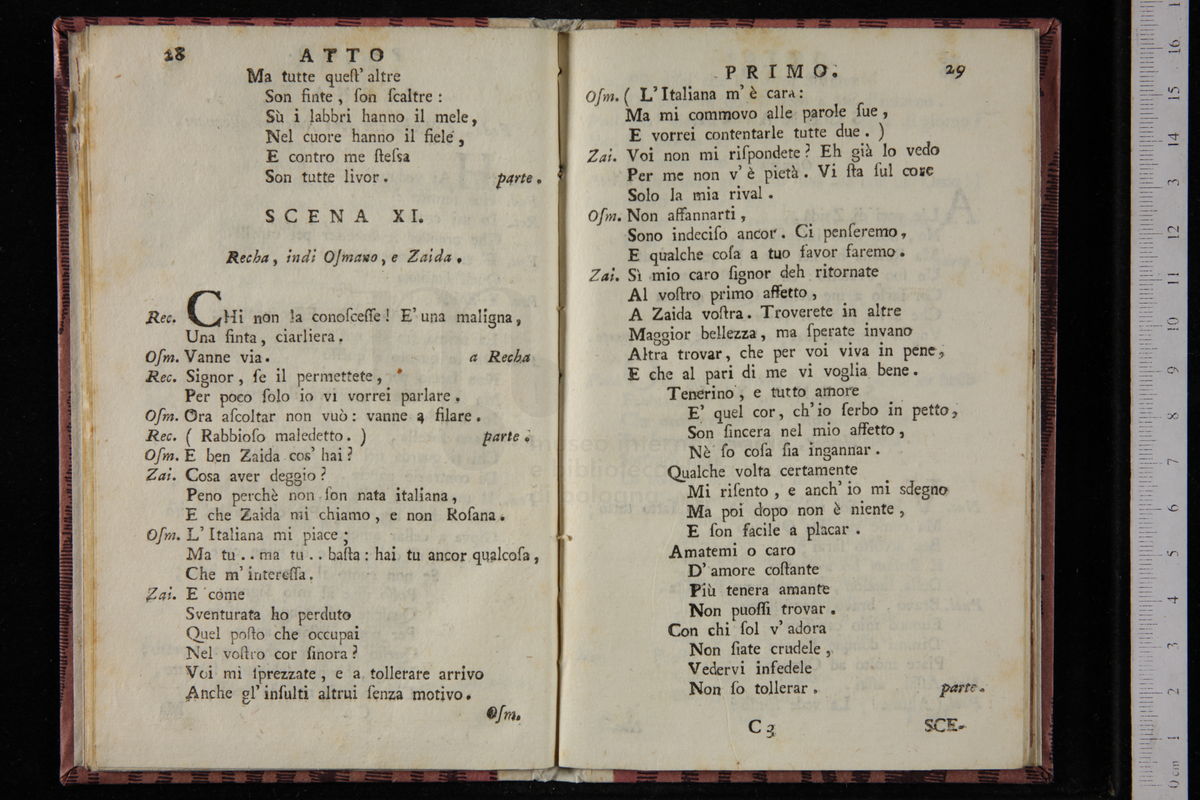 28
ATTO
Ma tutte queſt' altre
Son finte, ſon ſcaltre:
Sù i labbri hanno il mele,
Nel cuore hanno il fiele,
E contro me ſteſsa
Son tutte livor. parte.
SCENA XI.
Recha, indi Oſmano, e Zaida.
Rec. CHi non la conoſceſſe! E' una maligna,
Una finta, ciarliera.
Oſm. Vanne via. a Recha
Rec. Signor, ſe il permettete,
Per poco ſolo io vi vorrei parlare.
Oſm. Ora aſcoltar non vuò: vanne a filare.
Rec. ( Rabbioſo maledetto. ) parte.
Oſm. E ben Zaida cos' hai?
Zai. Coſa aver deggio?
Peno perchè non ſon nata italiana,
E che Zaida mi chiamo, e non Roſana.
Oſm. L' Italiana mi piace;
Ma tu .. ma tu .. baſta: hai tu ancor qualcoſa,
Che m' intereſſa.
Zai. E come
Sventurata ho perduto
Quel poſto che occupai
Nel voſtro cor ſinora?
Voi mi ſprezzate, e a tollerare arrivo
Anche gl' inſulti altrui ſenza motivo.
Oſm.
PRIMO. 29
Oſm. ( L' Italiana m' è cara:
Ma mi commovo alle parole ſue,
E vorrei contentarle tutte due. )
Zai. Voi non mi riſpondete? Eh già lo vedo
Per me non v' è pietà. Vi ſta ſul core
Solo la mia rival.
Oſm. Non affannarti,
Sono indeciſo ancor. Ci penſeremo,
E qualche coſa a tuo favor faremo.
Zai. Sì mio caro ſignor deh ritornate
Al voſtro primo affetto,
A Zaida voſtra. Troverete in altre
Maggior bellezza, ma ſperate invano
Altra trovar, che per voi viva in pene,
E che al pari di me vi voglia bene.
Tenerino, e tutto amore
E' quel cor, ch' io ſerbo in petto,
Son ſincera nel mio affetto,
Nè ſo coſa ſia ingannar.
Qualche volta certamente
Mi riſento, e anch' io mi sdegno
Ma poi dopo non è niente,
E ſon facile a placar.
Amatemi o caro
D' amore coſtante
Più tenera amante
Non puoſſi trovar.
Con chi ſol v' adora
Non ſiate crudele,
Vedervi infedele
Non ſo tollerar. parte.
C 3 SCE-